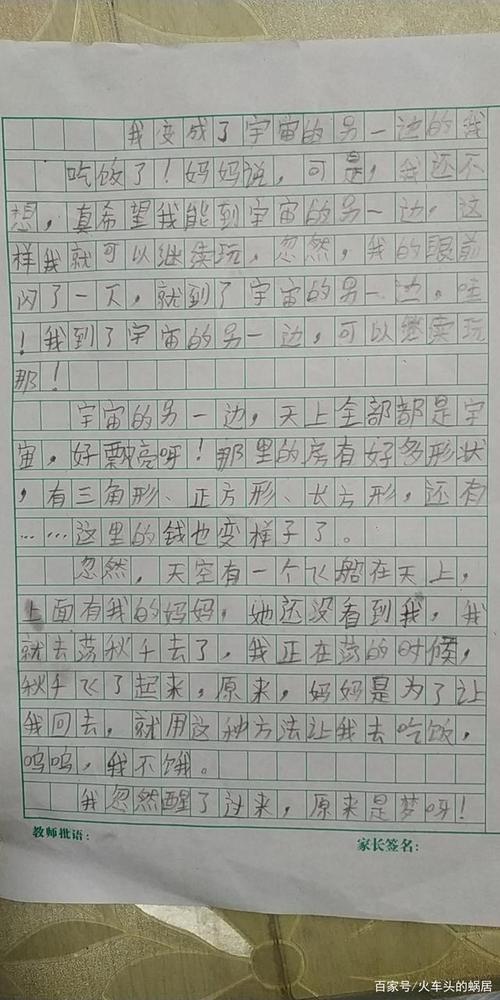 我变成了宇宙的另一边的我
吃饭了！妈妈说，可是，我还不
想，真希望我能到宇宙的另一边，这
样我就可以继续玩，忽然，我的眼前
闪了一下，就到了宇宙的另一边，哇
！我到了宇宙的另一边，可以继续玩
那！
宇宙的另一边，天上全部都是宇
宙，好漂亮呀！那里的房有好多形状
，有三角形、正方形、长方形，还有
……这里的钱也变样子了。
忽然，天空有一个飞船在天上，
上面有我的妈妈，她还没看到我，我
就去荡秋千去了，我正在荡的时候，
秋千飞了起来，原来，妈妈是为了让
我回去，就用这种方法让我去吃饭，
呜呜，我不饿。
我忽然醒了过来，原来是梦呀！
教师批语：
家长签名：
百家号/火车头的蜗居